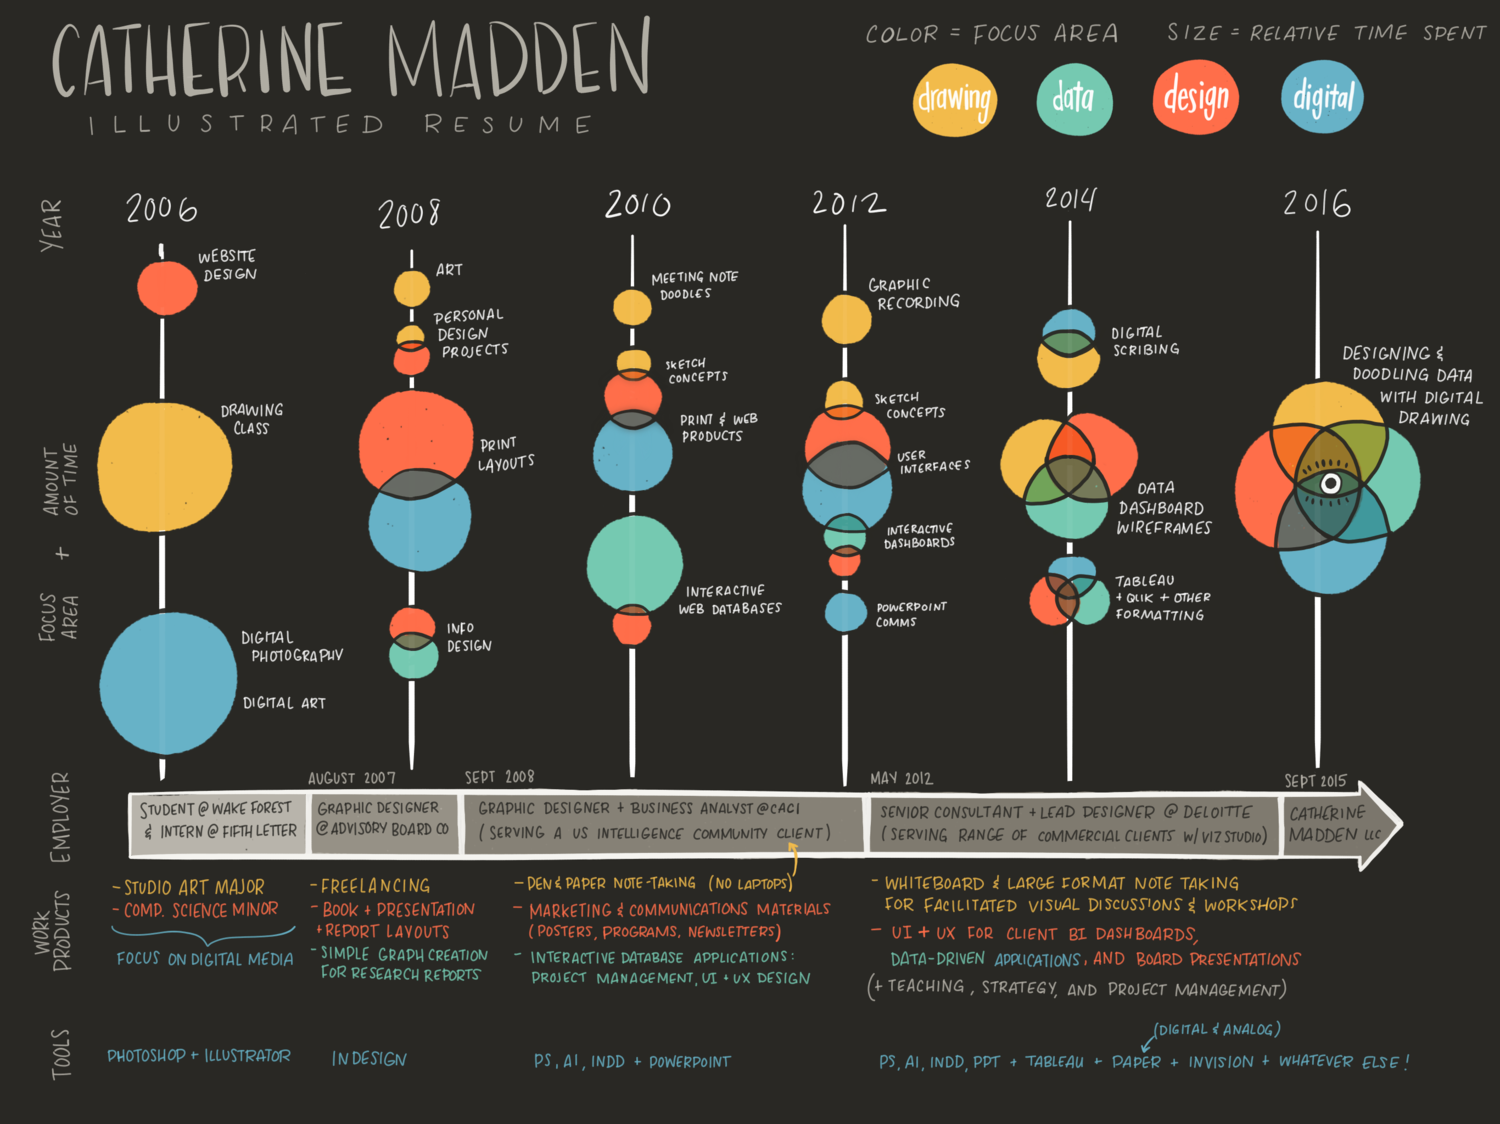 CATHERINE MADDEN
ILLUSTRATED RESUME
COLOR = FOCUS AREA
SIZE = RELATIVE TIME SPENT
drawing
data
design
digital
YEAR
2006
2008
2010
2012
2014
2016
AMOUNT
OF TIME
+
FOCUS
AREA
WEBSITE
DESIGN
DRAWING
CLASS
DIGITAL
PHOTOGRAPHY
DIGITAL ART
ART
PERSONAL
DESIGN
PROJECTS
PRINT
LAYOUTS
INFO
DESIGN
MEETING NOTE
DOODLES
SKETCH
CONCEPTS
PRINT & WEB
PRODUCTS
INTERACTIVE
WEB DATABASES
GRAPHIC
RECORDING
SKETCH
CONCEPTS
USER
INTERFACES
INTERACTIVE
DASHBOARDS
POWERPOINT
COMMS
DIGITAL
SCRIBING
DATA
DASHBOARD
WIREFRAMES
TABLEAU
+ QLIK + OTHER
FORMATTING
DESIGNING &
DOODLING DATA
WITH DIGITAL
DRAWING
EMPLOYER
AUGUST 2007
SEPT 2008
MAY 2012
SEPT 2015
STUDENT @ WAKE FOREST
& INTERN @ FIFTH LETTER
GRAPHIC DESIGNER
@ ADVISORY BOARD CO
GRAPHIC DESIGNER + BUSINESS ANALYST @ CACI
(SERVING A US INTELLIGENCE COMMUNITY CLIENT)
SENIOR CONSULTANT + LEAD DESIGNER @ DELOITTE
(SERVING RANGE OF COMMERCIAL CLIENTS W/ VIZ STUDIO)
CATHERINE
MADDEN LLC
WORK
PRODUCTS
- STUDIO ART MAJOR
- COMP. SCIENCE MINOR
FOCUS ON DIGITAL MEDIA
- FREELANCING
- BOOK + PRESENTATION
+ REPORT LAYOUTS
- SIMPLE GRAPH CREATION
FOR RESEARCH REPORTS
- PEN & PAPER NOTE-TAKING (NO LAPTOPS)
- MARKETING & COMMUNICATIONS MATERIALS
(POSTERS, PROGRAMS, NEWSLETTERS)
- INTERACTIVE DATABASE APPLICATIONS:
PROJECT MANAGEMENT, UI + UX DESIGN
- WHITEBOARD & LARGE FORMAT NOTE TAKING
FOR FACILITATED VISUAL DISCUSSIONS & WORKSHOPS
- UI + UX FOR CLIENT BI DASHBOARDS,
DATA-DRIVEN APPLICATIONS, AND BOARD PRESENTATIONS
(+ TEACHING, STRATEGY, AND PROJECT MANAGEMENT)
TOOLS
PHOTOSHOP + ILLUSTRATOR
INDESIGN
PS, AI, INDD + POWERPOINT
(DIGITAL & ANALOG)
PS, AI, INDD, PPT + TABLEAU + PAPER + INVISION + WHATEVER ELSE!